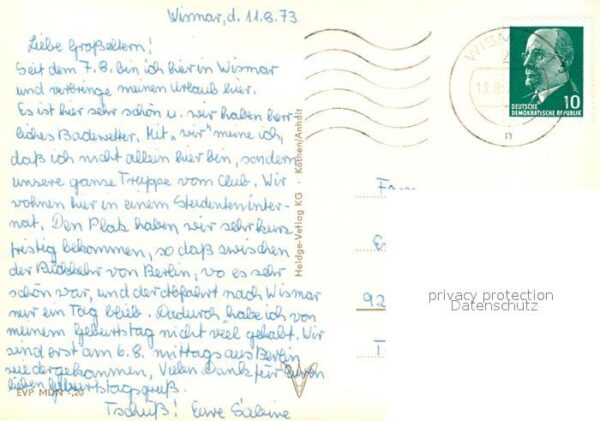 Wismar, d. 11.8.73
Liebe Großeltern!
Seit dem 7.8. bin ich hier in Wismar
und verbringe meinen Urlaub hier.
Es ist hier sehr schön u. wir haben herr-
liches Badewetter. Mit „wir" meine ich
daß ich nicht allein hier bin, sondern
unsere ganze Truppe vom Club. Wir
wohnen hier in einem Studenteninter-
nat. Den Platz haben wir sehr kurz-
fristig bekommen, so daß zwischen
der Rückkehr von Berlin, wo es sehr
schön war, und der Abfahrt nach Wismar
nur ein Tag blieb. Dadurch habe ich von
meinem Geburtstag nicht viel gehabt. Wir
sind erst am 6.8. mittags aus Berlin
wiedergekommen. Vielen Dank für euren
lieben Geburtstagsgruß.
Tschüß! Eure Sabine
EVP MDN -,20
Heldge-Verlag KG · Köthen/Anhalt
WISM
DEUTSCHE
DEMOKRATISCHE REPUBLIK
10
n
92
privacy protection
Datenschutz